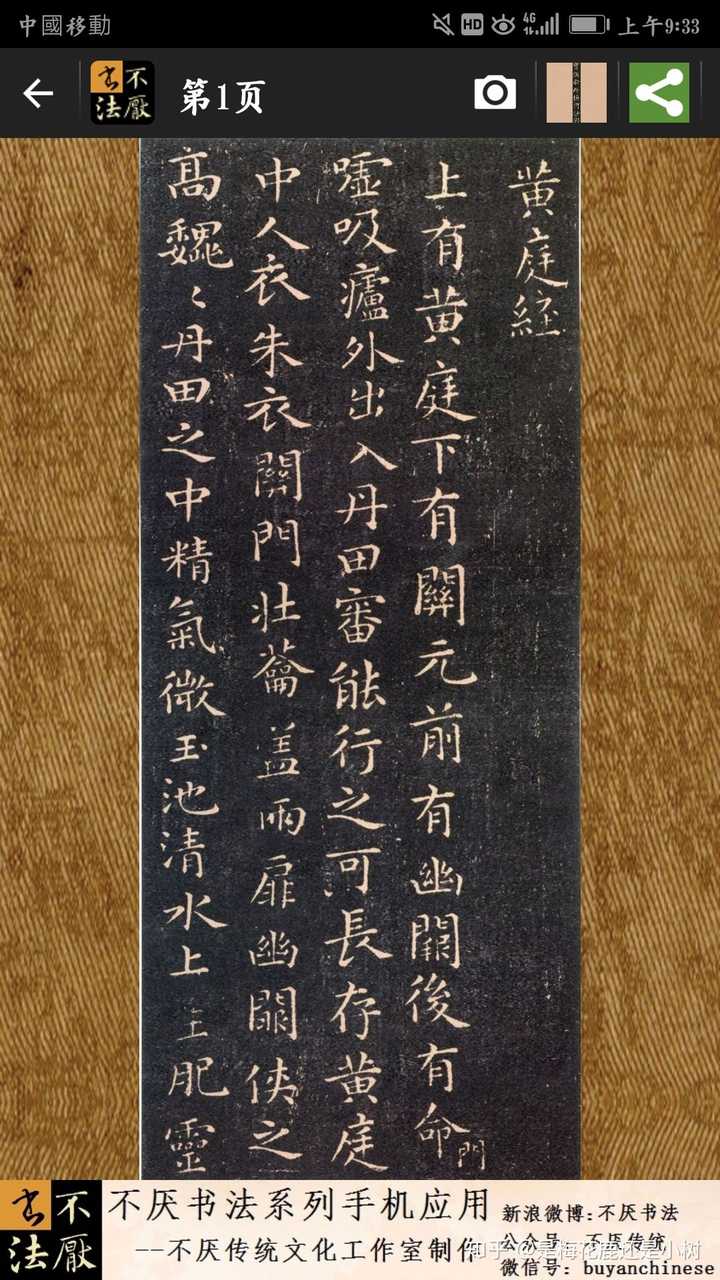 中國移動
HD 4G 上午9:33
不厭书法
第1页
黄庭経
上有黄庭下有關元前有幽闕後有命門
嘘吸廬外出入丹田審能行之可長存黄庭
中人衣朱衣關門壮蘥盖兩扉幽闕侠之
高魏〻丹田之中精氣微玉池清水上生肥靈
不厭书法
不厌书法系列手机应用
--不厌传统文化工作室制作
新浪微博:不厌书法
公众号: 不厌传统
微信号: buyanchinese
知乎 @是梅花鹿还是小树